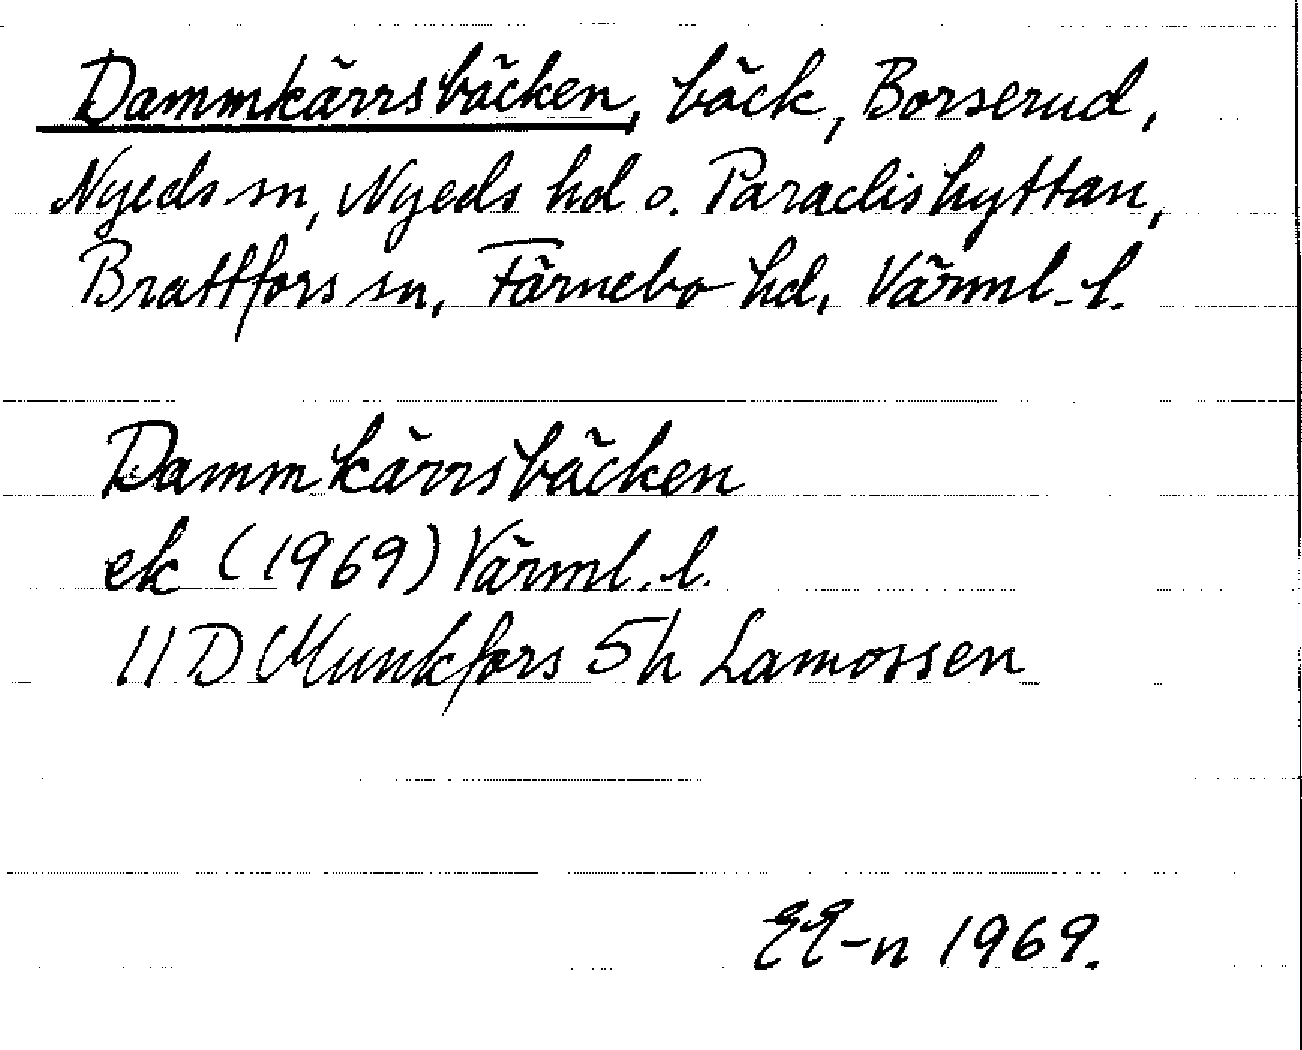 Dammkärrsbäcken, bäck, Borserud,
Nyeds sn, Nyeds hd o. Paradishyttan,
Brattfors sn, Färnebo hd, Värml. l.
Dammkärrsbäcken
ek (1969) Värml. l.
11D Munkfors 5h Lamossen
EE-n 1969.